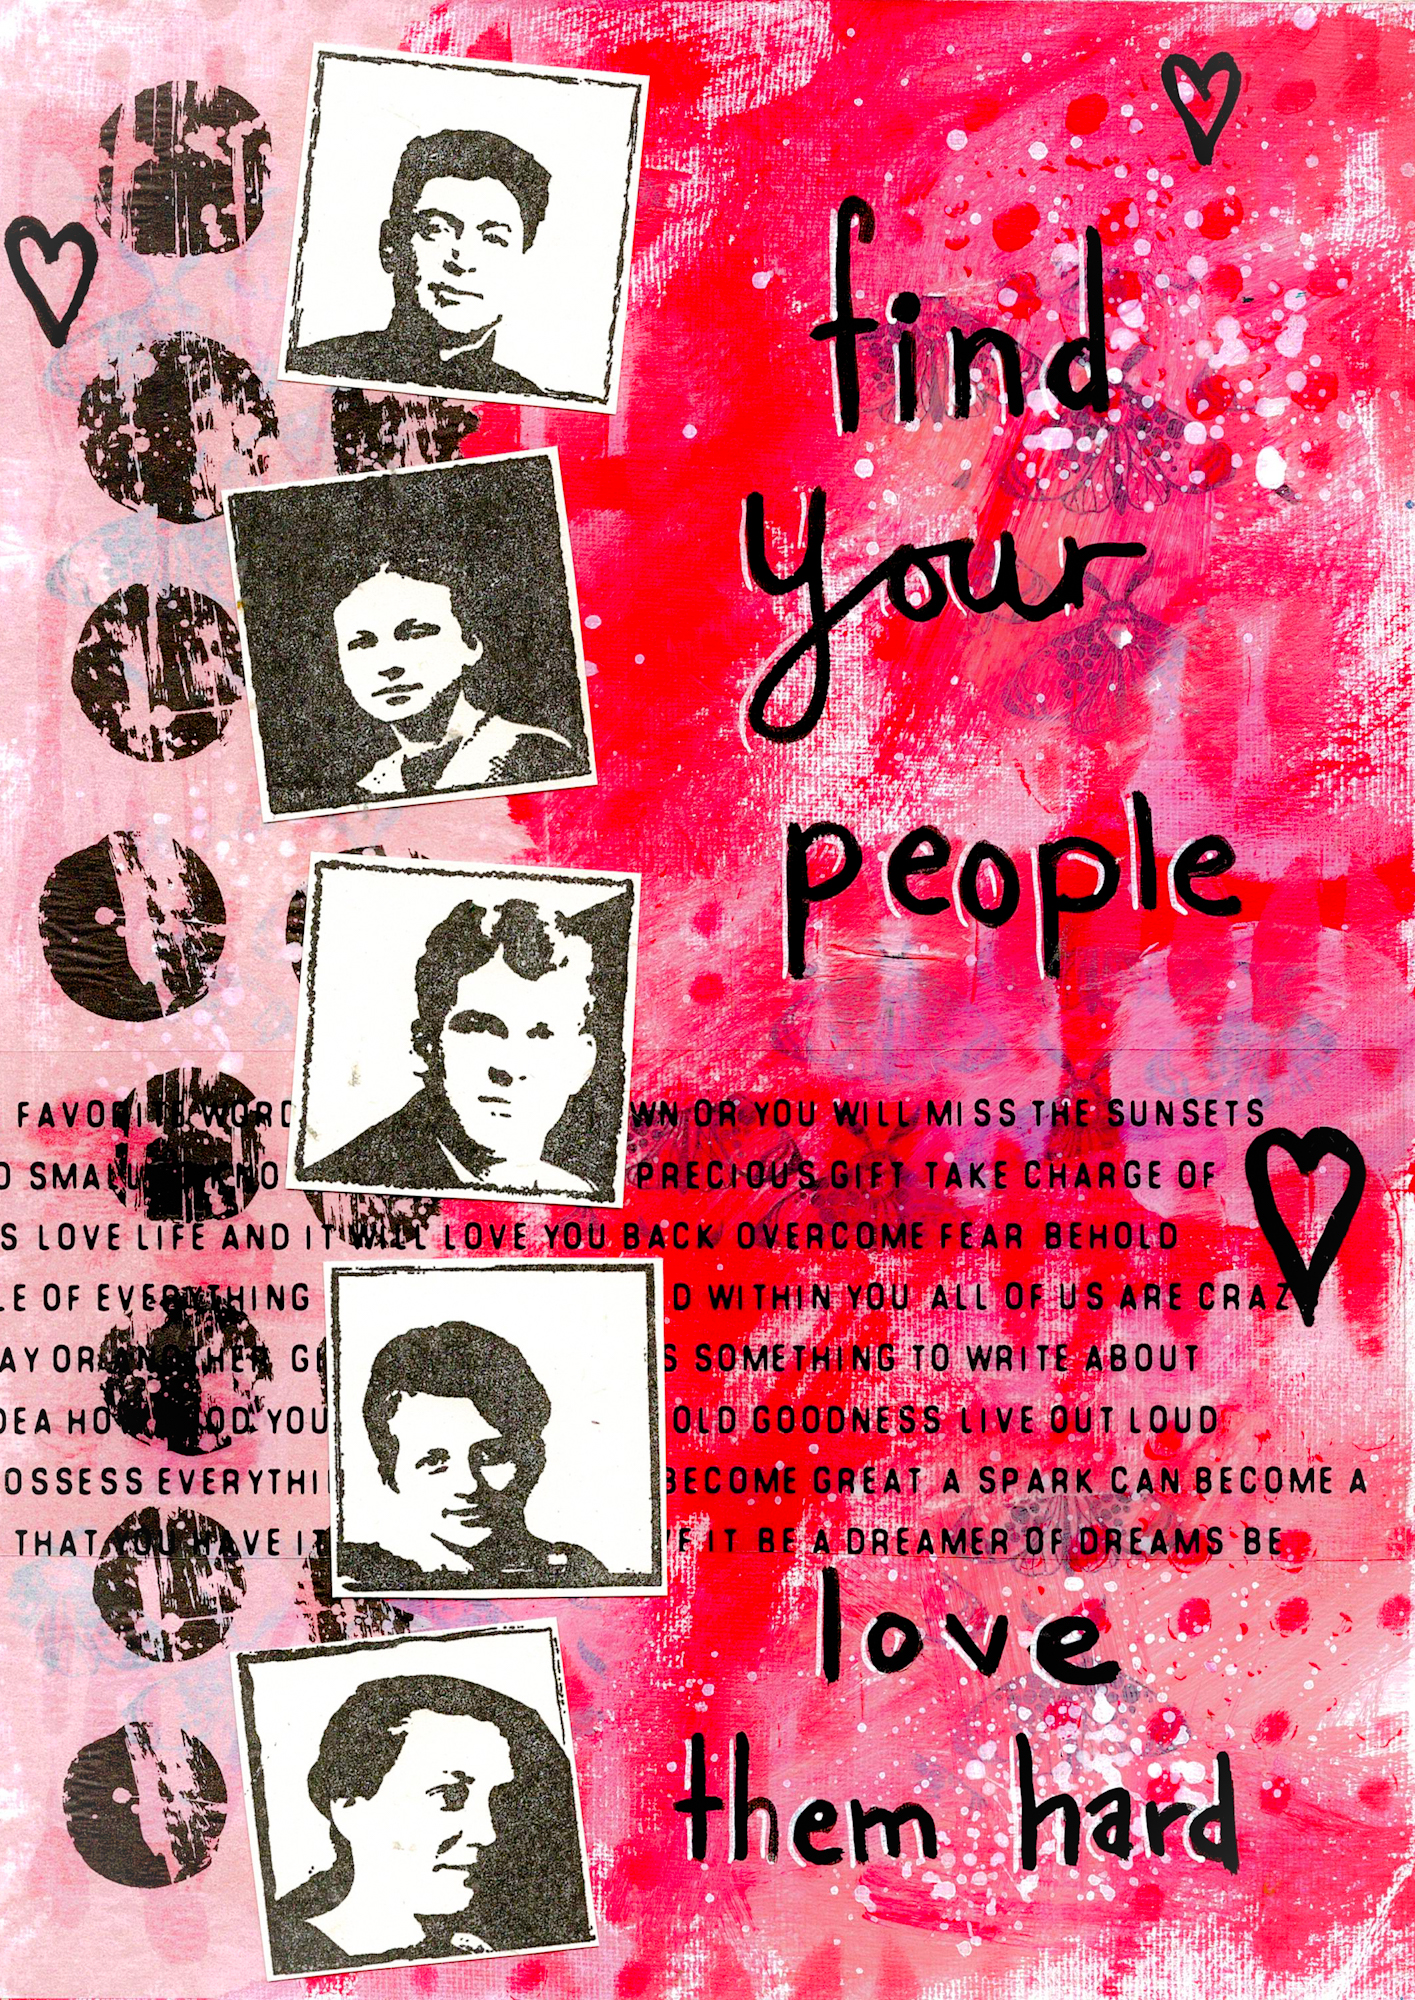 find
your
people
FAVORITE WORD WN OR YOU WILL MISS THE SUNSETS
O SMALL KNO PRECIOUS GIFT TAKE CHARGE OF
S LOVE LIFE AND IT WILL LOVE YOU BACK OVERCOME FEAR BEHOLD
LE OF EVERYTHING D WITHIN YOU ALL OF US ARE CRAZ
AY OR ANOTHER GE S SOMETHING TO WRITE ABOUT
DEA HO OD YOU OLD GOODNESS LIVE OUT LOUD
OSSESS EVERYTHI BECOME GREAT A SPARK CAN BECOME A
THAT YOU HAVE IT VE IT BE A DREAMER OF DREAMS BE
love
them hard